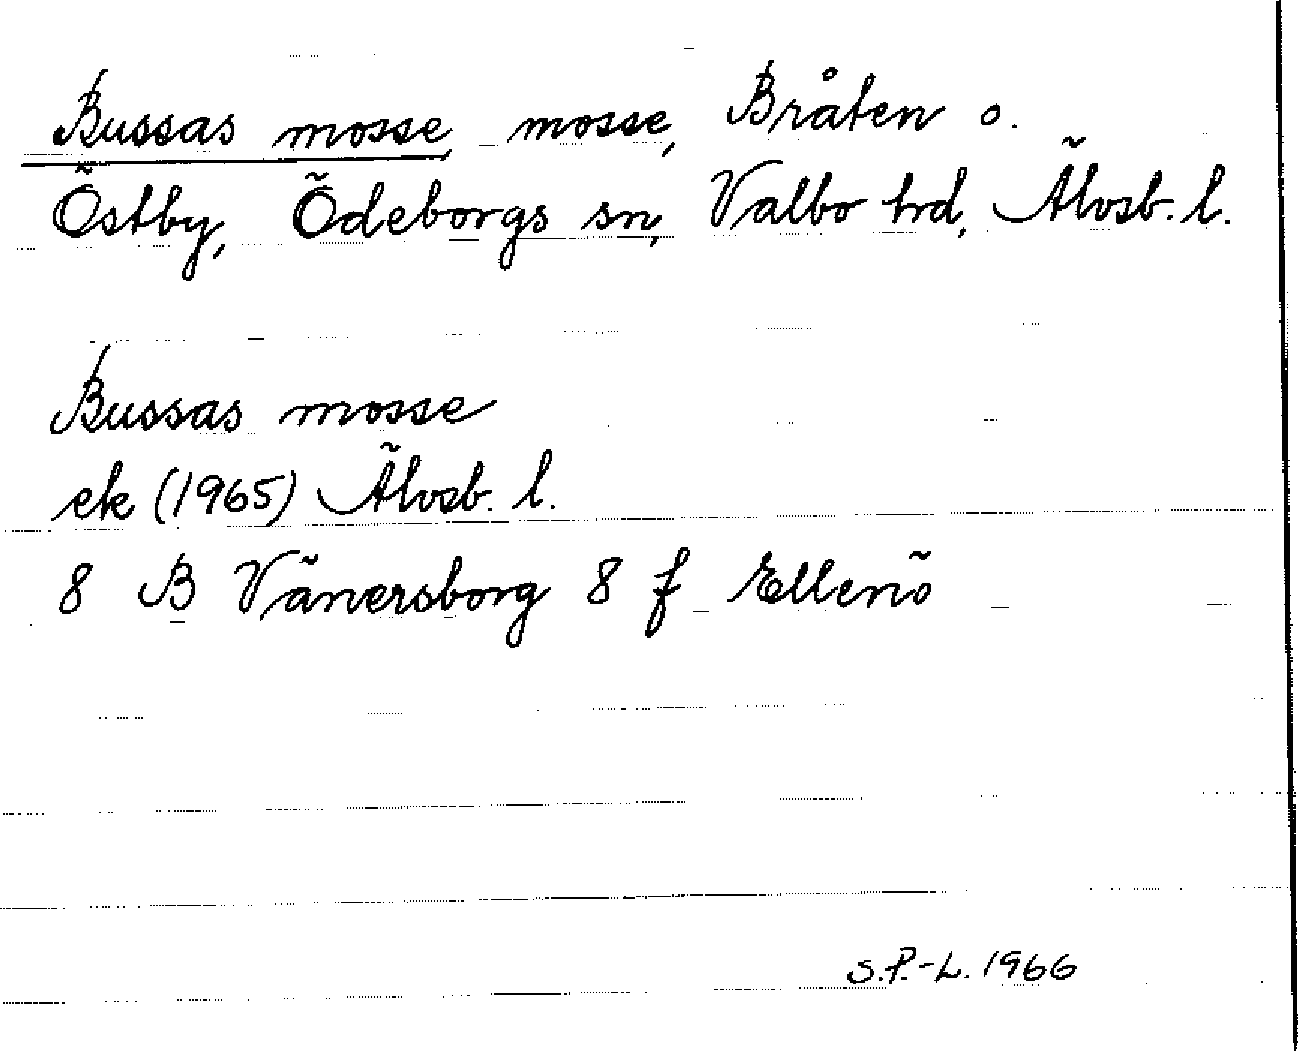 Bussas mosse, mosse, Bråten o.
Östby, Ödeborgs sn, Valbo hrd, Älvsb. l.
Bussas mosse
ek (1965) Älvsb. l.
8 B Vänersborg 8 f Ellenö
S.P.-L. 1966